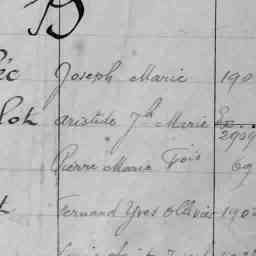 B
éc Joseph Marie 190
lot aristide Jh Marie Ex 2929
Pierre Marie Fois 69
t Fernand Yves Ollivier 190